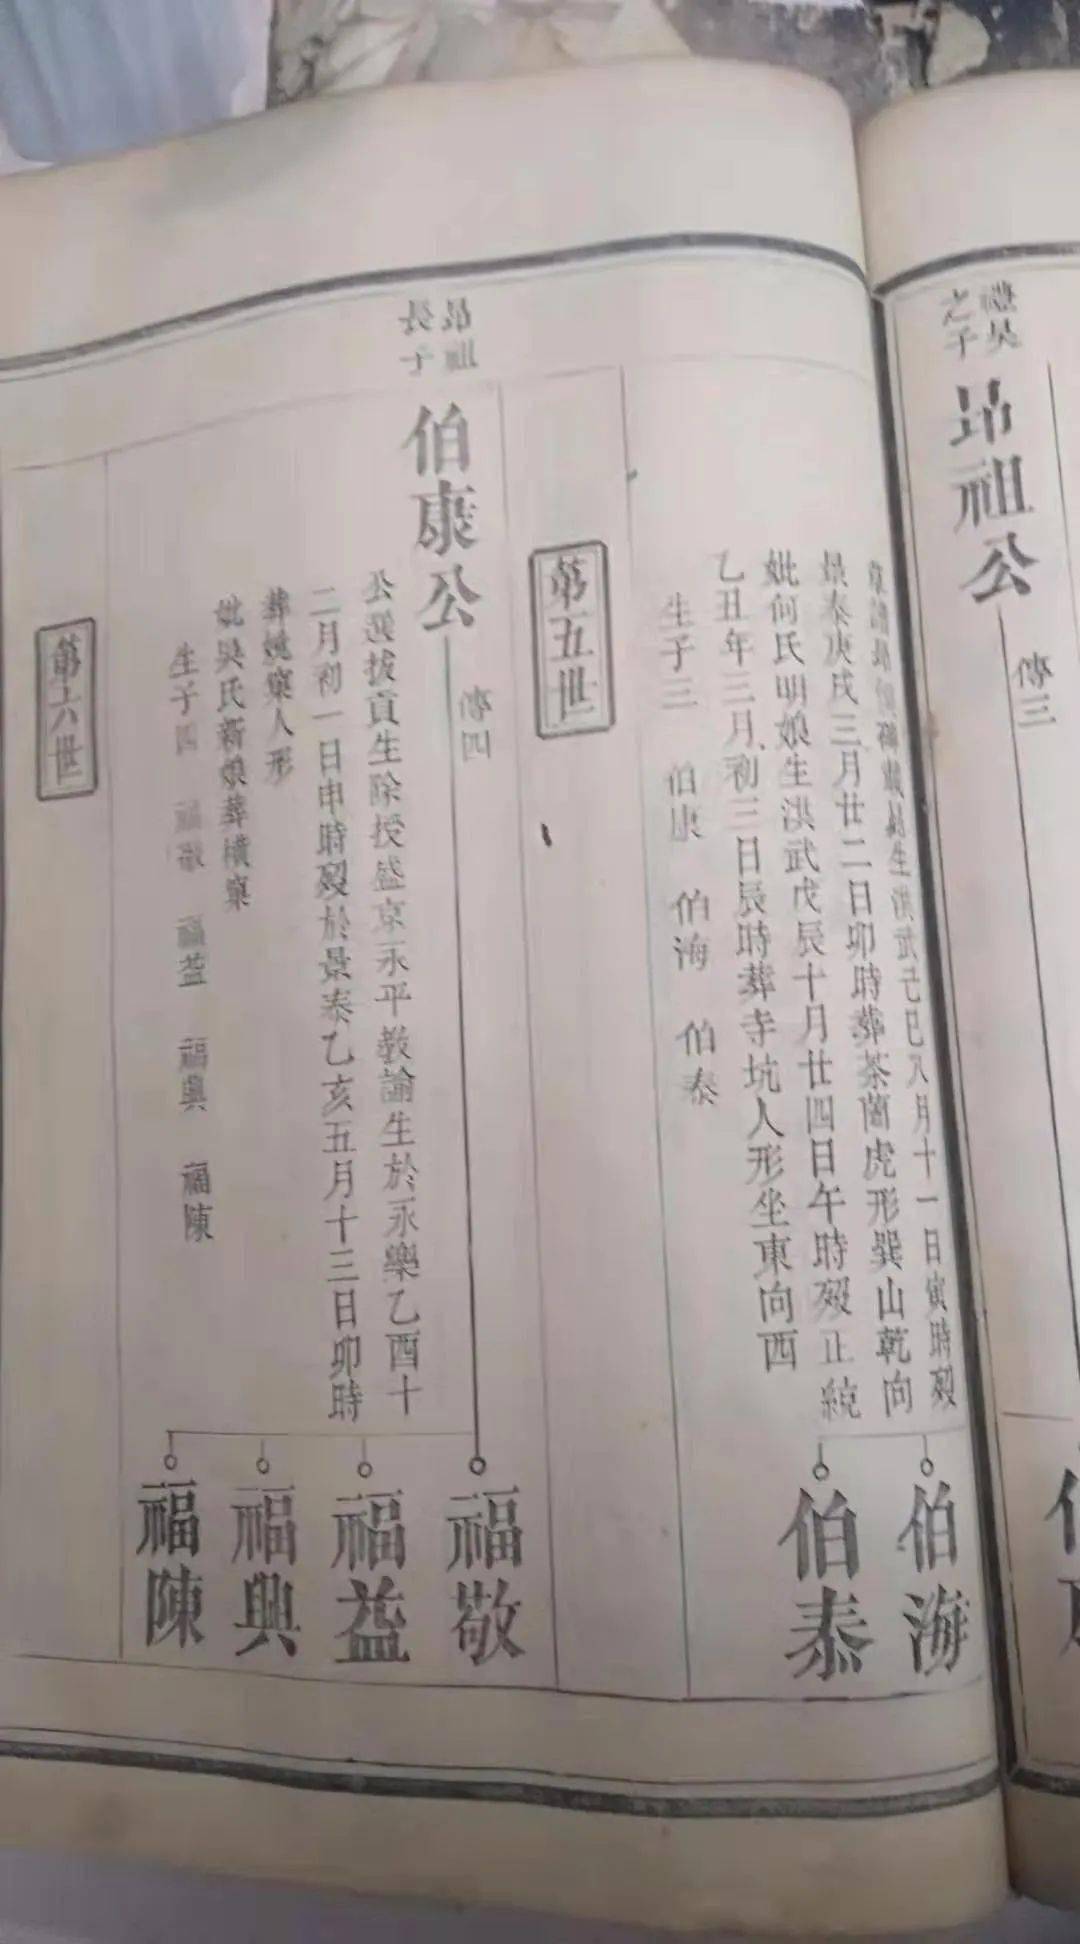 禮昊
之子
昂祖公
傳三
生洪武己巳八月十一日寅時歿
景泰庚戌三月廿二日卯時葬茶蔮虎形巽山乾向
妣何氏明娘生洪武戊辰十月廿四日午時歿正統
乙丑年三月初三日辰時葬寺坑人形坐東向西
生子三 伯康 伯海 伯泰
伯海
伯泰
第五世
昂祖
長子
伯康公
傳四
公選拔貢生除授盛京永平教諭生於永樂乙酉十
二月初一日申時歿於景泰乙亥五月十三日卯時
葬嬈窠人形
妣吳氏新娘葬橫窠
生子四 福敬 福益 福興 福陳
福敬
福益
福興
福陳
第六世